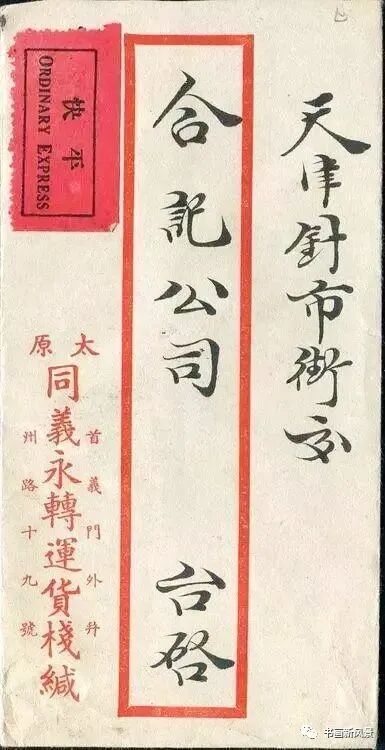 天津針市街交
合記公司 台啓
太原
首義門外幷
同義永轉運貨棧緘
州路十九號
平快
ORDINARY EXPRESS
书画新风景